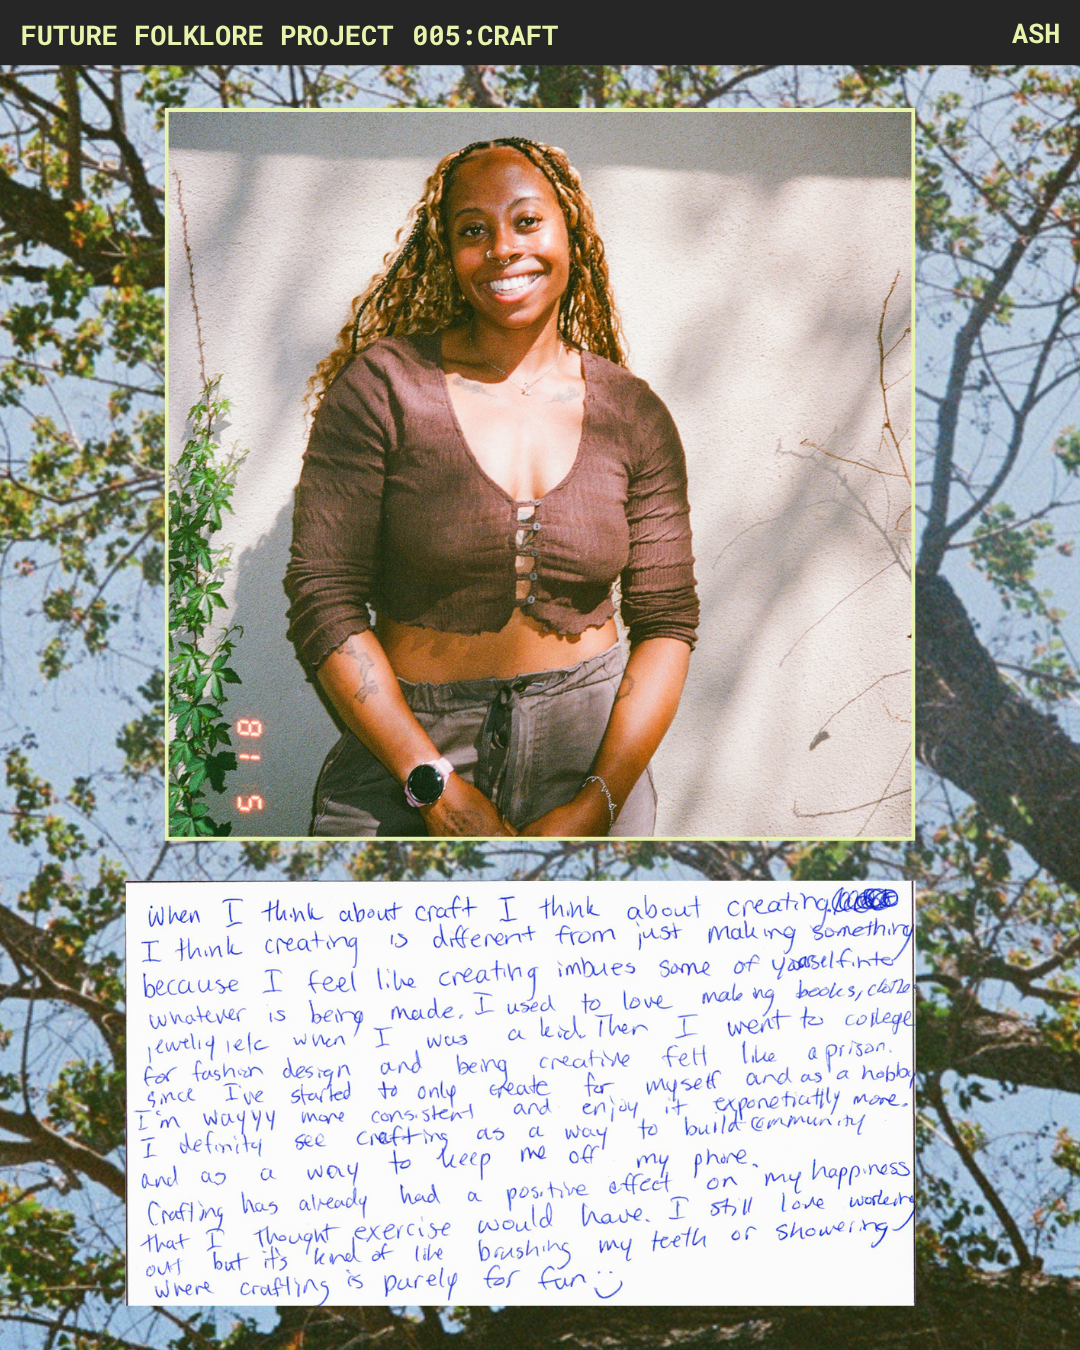 FUTURE FOLKLORE PROJECT 005:CRAFT
ASH
5 18
When I think about craft I think about creating.
I think creating is different from just making something
because I feel like creating imbues some of yourself into
whatever is being made. I used to love making books, clothes
jewelry, etc when I was a kid. Then I went to college
for fashion design and being creative felt like a prison.
Since I've started to only create for myself and as a hobby
I'm wayyy more consistent and enjoy it more.
I definity see crafting as a way to build community
and as a way to keep me off my phone.
Crafting has already had a positive effect on my happiness
that I thought exercise would have. I still love working
out but it's kind of like brushing my teeth or showering
where crafting is purely for fun :)